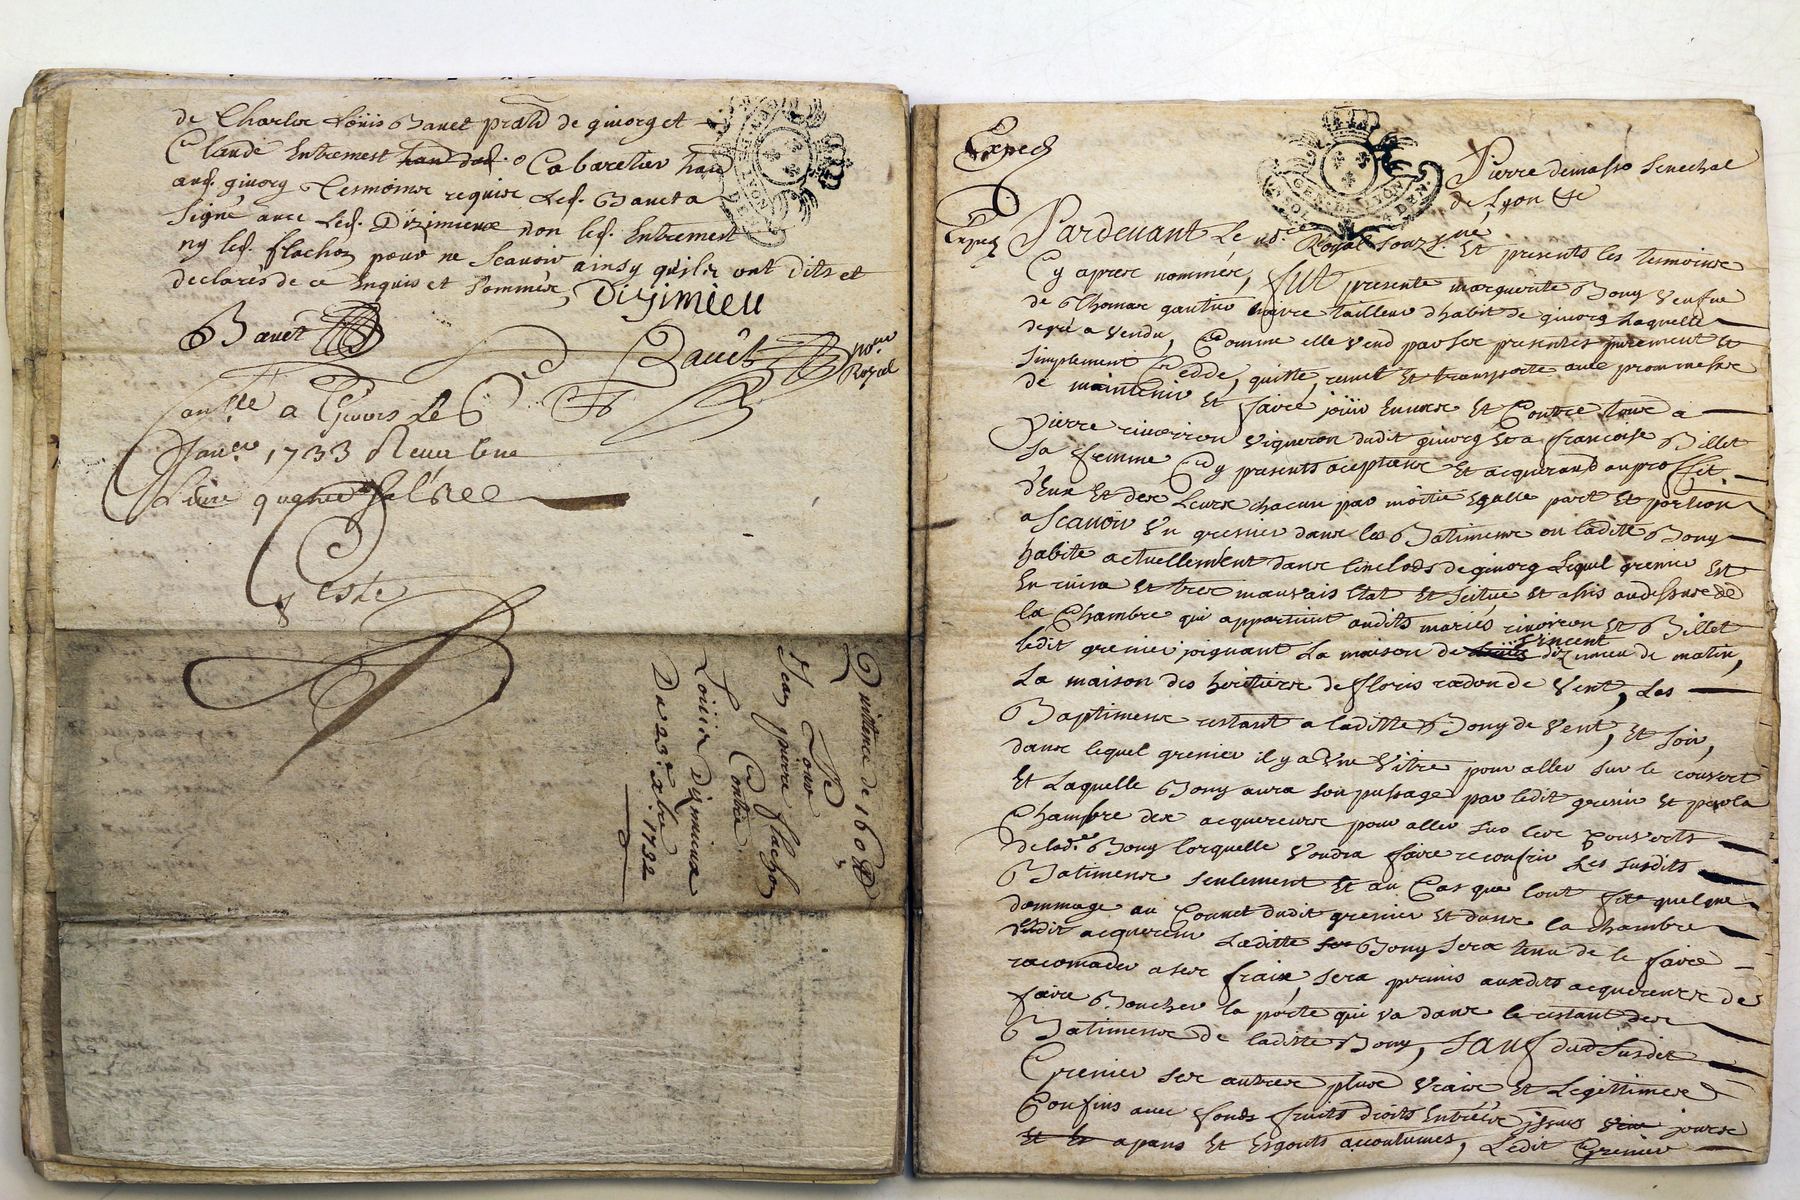 de Charles Loüis Bauet prati de giuorg et
Claude Entremest o Cabaretier
aud. giuorg tesmoins requis led. Baueta
signé auec led. Dizimieux non led. Entremest
ny led. flachon pour ne scauoir ainsy qu'ils ont dits et
declarés de ce Enquis et sommés, Dizimieu
Bauet
Bauet no.re Royal
a Giuors Le 6
Jan.er 1733 Receu
Liure quatre
Quittance de 160 ₶
Pour
Jean pierre flachon
Contre
Loüis Dizimieux
Du 23.e xbre 1732
GEN. DE LYON
Exped
GEN. DE LYON
UN SOL 4 DEN.
Pierre demasso senechal
de Lyon &c
Exped
Pardeuant Le no.re Royal souz.né et presents les temoins
Cy apres nommés, fut presente marguerite Bony Veufue
de Thomas gautier tailleur dhabit de giuorg Laquelle
degré a vendu, Comme elle vend par ses presentes purement et
simplement Cedde, quitte, remet et transporte auec promesse
de maintenir et faire jouir Enuers et Contre tous a
pierre riuoiron vigneron dudit giuorg et a francoise Billet
sa femme Cy presents aceptants et acquerand au proffit
d'Eux et des Leurs chacun par moitie Egalle part et portion
a scauoir vn grenier dans les Batiments ou ladite Bony
habite actuellement dans linclods de giuorg Lequel grenier Est
En ruine et tres mauuais Etat et scitué et assis audessus de
la Chambre qui appartient audits mariés riuoiron et Billet
ledit grenier joignant La maison de Vincent dizimieu de matin,
La maison des heritiers de floris radon de Vent, Les
Baptiments restant a laditte Bony de Vent, et soir,
dans lequel grenier il y a Vne Vitre pour aller sur le couuert
et Laquelle Bony aura son passage par ledit grenier et par la
Chambre des acquereurs pour aller sur les Couuerts
de lad.e Bony lorquelle Voudra faire recouurir Les susdits
Batiments seulement et au Cas que lout fit quelque
dommage au Couuert dudit grenier et dans la chambre
desdit acquereurs Laditte Bony sera tenu de le faire
racomoder a ses fraix, sera permis auxdits acquereurs de
faire Boucher la porte qui va dans le restant des
Batiments de laditte Bony, sauf dud susdit
Grenier ses autres plus Vrais et Legittimes
Confins auec fonds fruits droits Entrées issues jours
apans et Esgouts accoutumés, Ledit Grenier